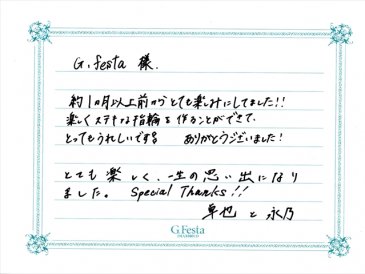 G.festa 様.
約1ヵ月以上前からとても楽しみにしてました!!
楽しくステキな指輪を作ることができて、
とってもうれしいです。 ありがとうございました!
とても楽しく、一生の思い出になり
ました。 Special Thanks!!
卓也 と 永乃
G.Festa